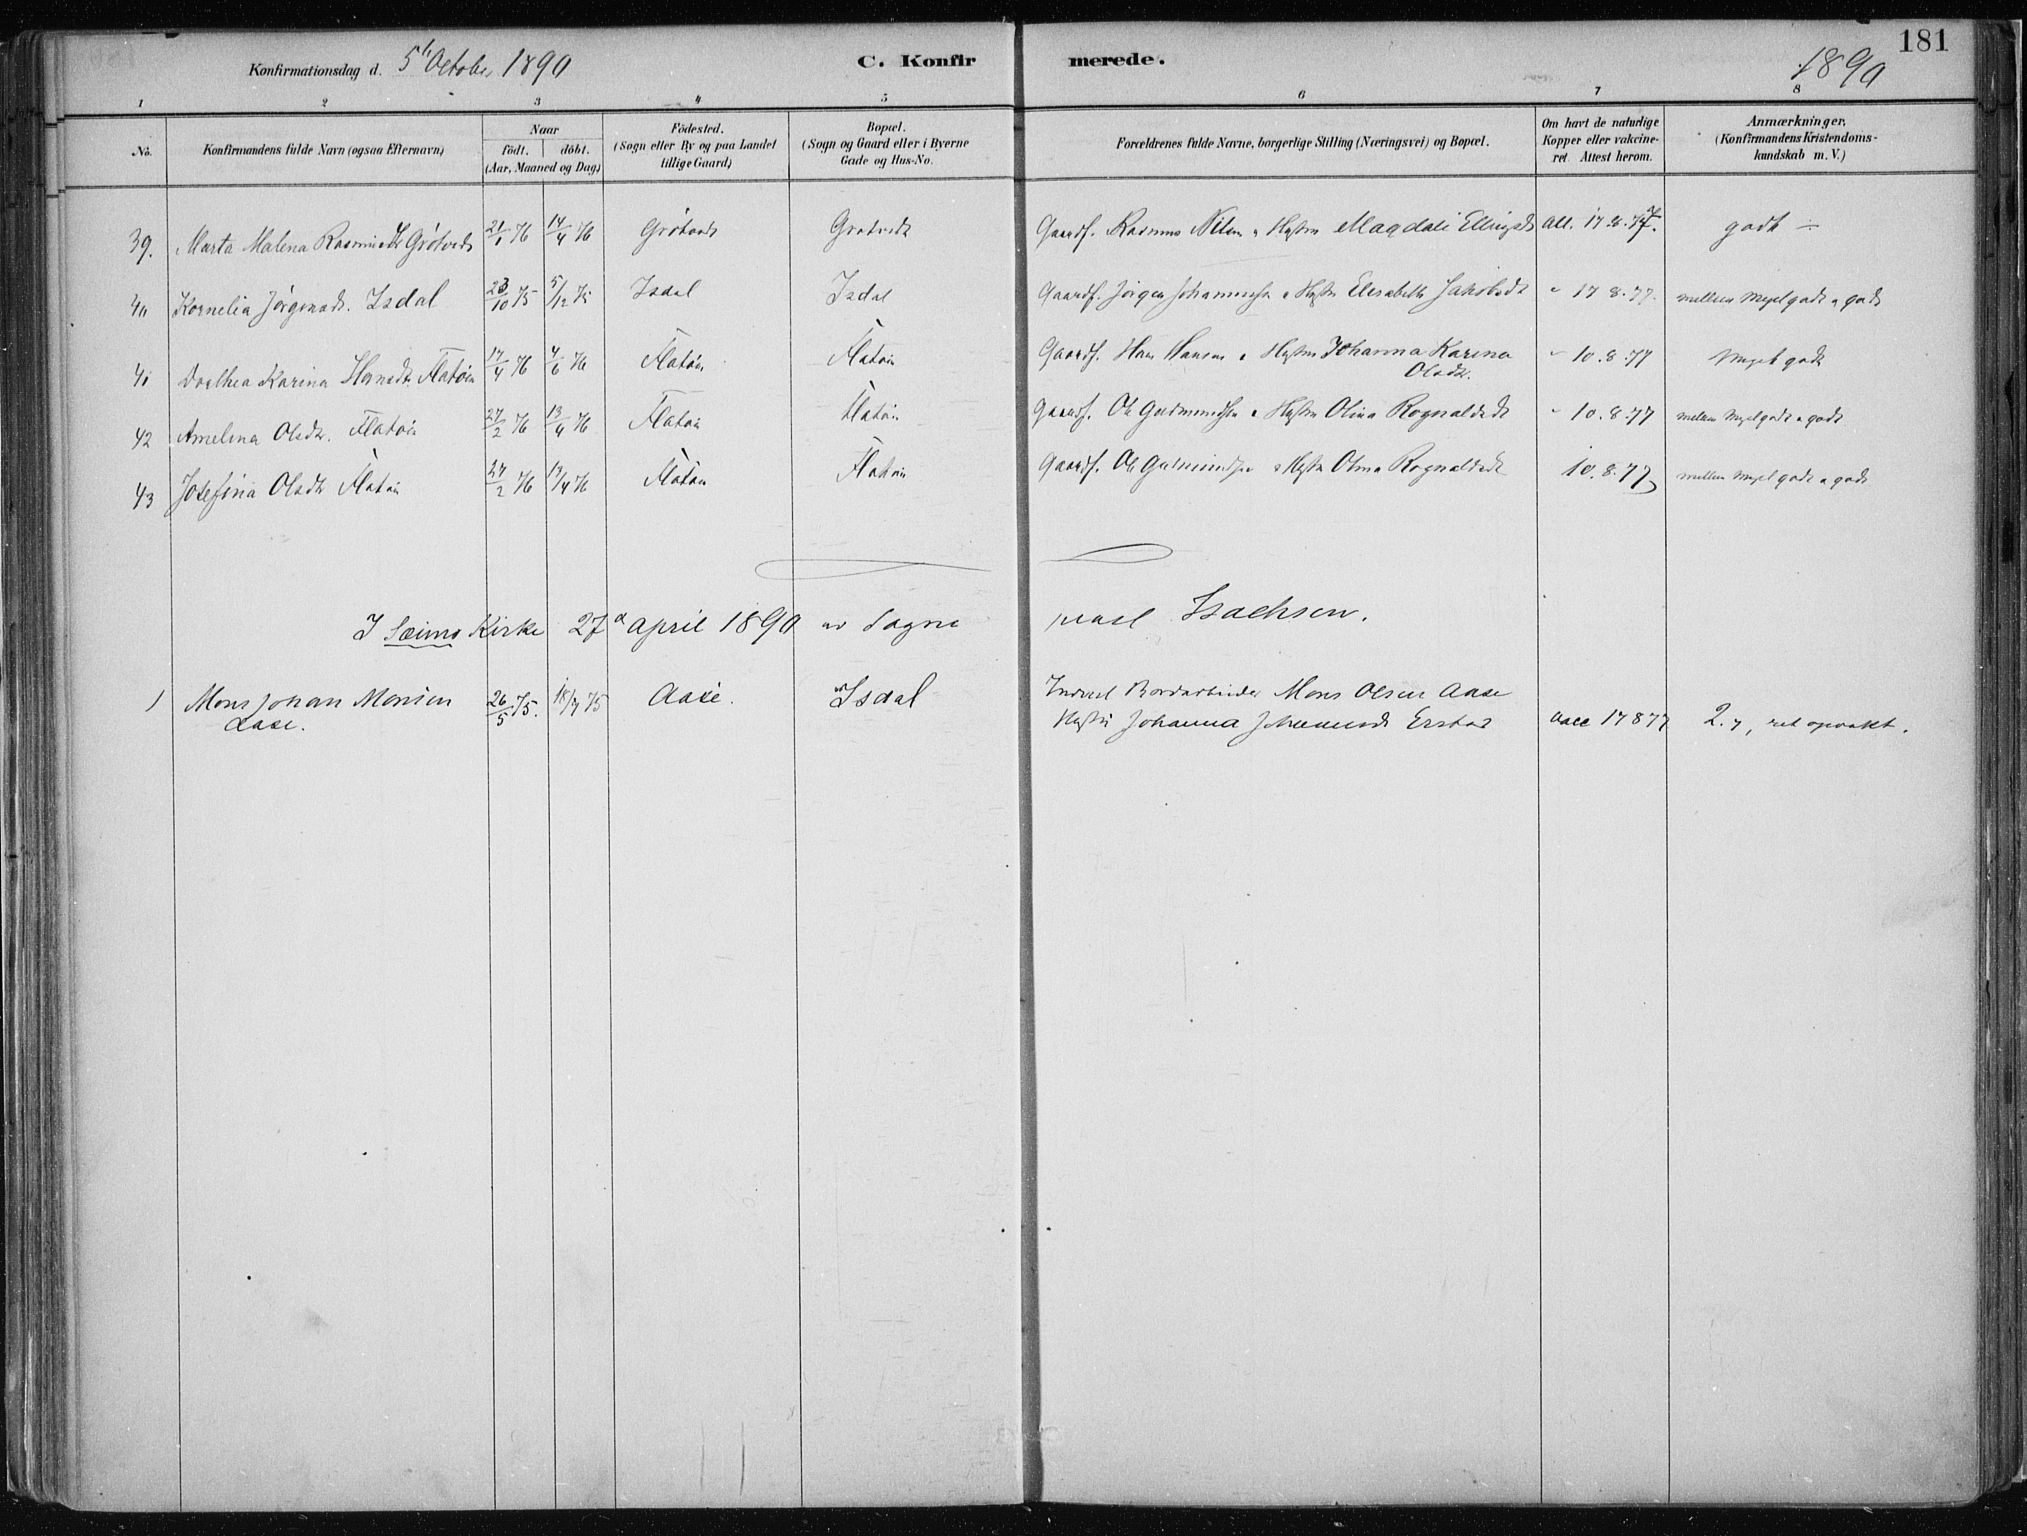 181
Konfirmationsdag d. 5 October 1890 C. Konfir merede. 1890
1 2 3 4 5 6 7 8
No. Konfirmandens fulde Navn (ogsaa Efternavn) Naar födt. döbt. (Aar, Maaned og Dag) Födested. (Sogn eller By og paa Landet tillige Gaard) Bopæl. (Sogn og Gaard eller i Byerne Gade og Hus-No. Forældrenes fulde Navne, borgerlige Stilling (Næringsvei) og Bopæl. Om havt de naturlige Kopper eller vakcineret. Attest herom. Anmærkninger. (Konfirmandens Kristendomskundskab m. V.)
39. Marta Malena Rasmusdt Grötvedt 21/1 76 14/4 76 Grötvedt Grotvedt Gaardf. Rasmus Nilsen Hustru Magdali Ellingsdt Att. 17.8.77. godt
40 Kornelia Jörgensdt. Isdal 23/10 75 5/12 75 Isdal Isdal Gaardf. Jörgen Johannessen Hustru Elisabeth Jakobsdt 17 8.77. mellem meget godt godt
41 Dorthea Karina Hansdt. Flatöin 17/4 76 4/6 76 Flatöin Flatöin Gaardf. Hans Hansen Hustru Johanna Karina
Olsdt. 10.8.77 Meget godt
42 Amelina Olsdt. Flatöin 27/2 76 13/4 76 Flatöin Flatöin Gaardf. Ole Gudmundsen Hustru Olina Rognaldsdt 10.8.77 mellem meget godt godt
43 Josefina Olsdt Flatöin 27/2 76 13/4 76 Flatöin Flatöin Gaardf. Ole Gudmundsen Hustru Olina Rognaldsdt 10.8.77 mellem meget godt godt
I Sæims Kirke 27 april 1890 av Sogne præst Isachsen.
1 Mons Johan Monsen 26/5 75. 18/7 75 Aase. Isdal Bordarbeider Mons Olsen Aase
Aase. Hustru Johanna Erstad 17 8 77 2.